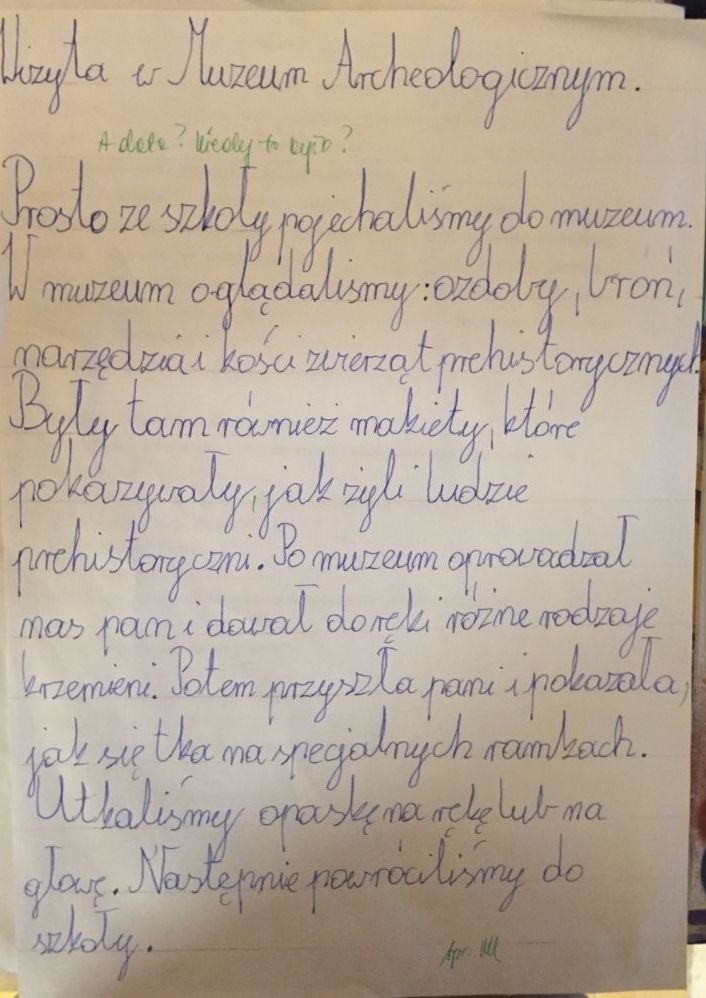 Wizyta w Muzeum Archeologicznym.
A data? Kiedy to było?
Prosto ze szkoły pojechaliśmy do muzeum.
W muzeum oglądaliśmy: ozdoby, broń,
narzędzia i kości zwierząt prehistorycznych.
Były tam również makiety, które
pokazywały, jak żyli ludzie
prehistoryczni. Po muzeum oprowadzał
nas pan i dawał do ręki różne rodzaje
krzemieni. Potem przyszła pani i pokazała,
jak się tka na specjalnych ramkach.
Utkaliśmy opaskę na rękę lub na
głowę. Następnie powróciliśmy do
szkoły.